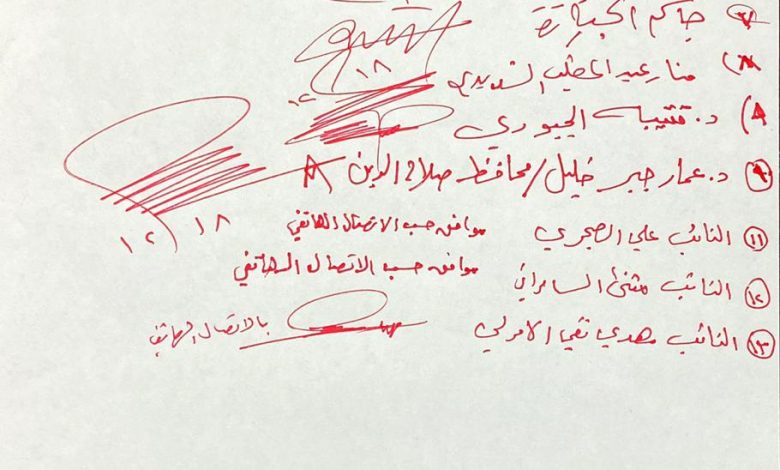 جاكم الجبارة
منار عبد المطلب الشديدي
١٨
١٢
٨) د. قتيبة الجبوري
٩ د. عمار جبر خليل / محافظ صلاح الدين
١٨
١٢
١١ النائب علي الصجري موافق حسب الاتصال الهاتفي
١٢ النائب مثنى السامرائي موافق حسب الاتصال الهاتفي
١٣ النائب مهدي تقي الامرلي بالاتصال الهاتفي